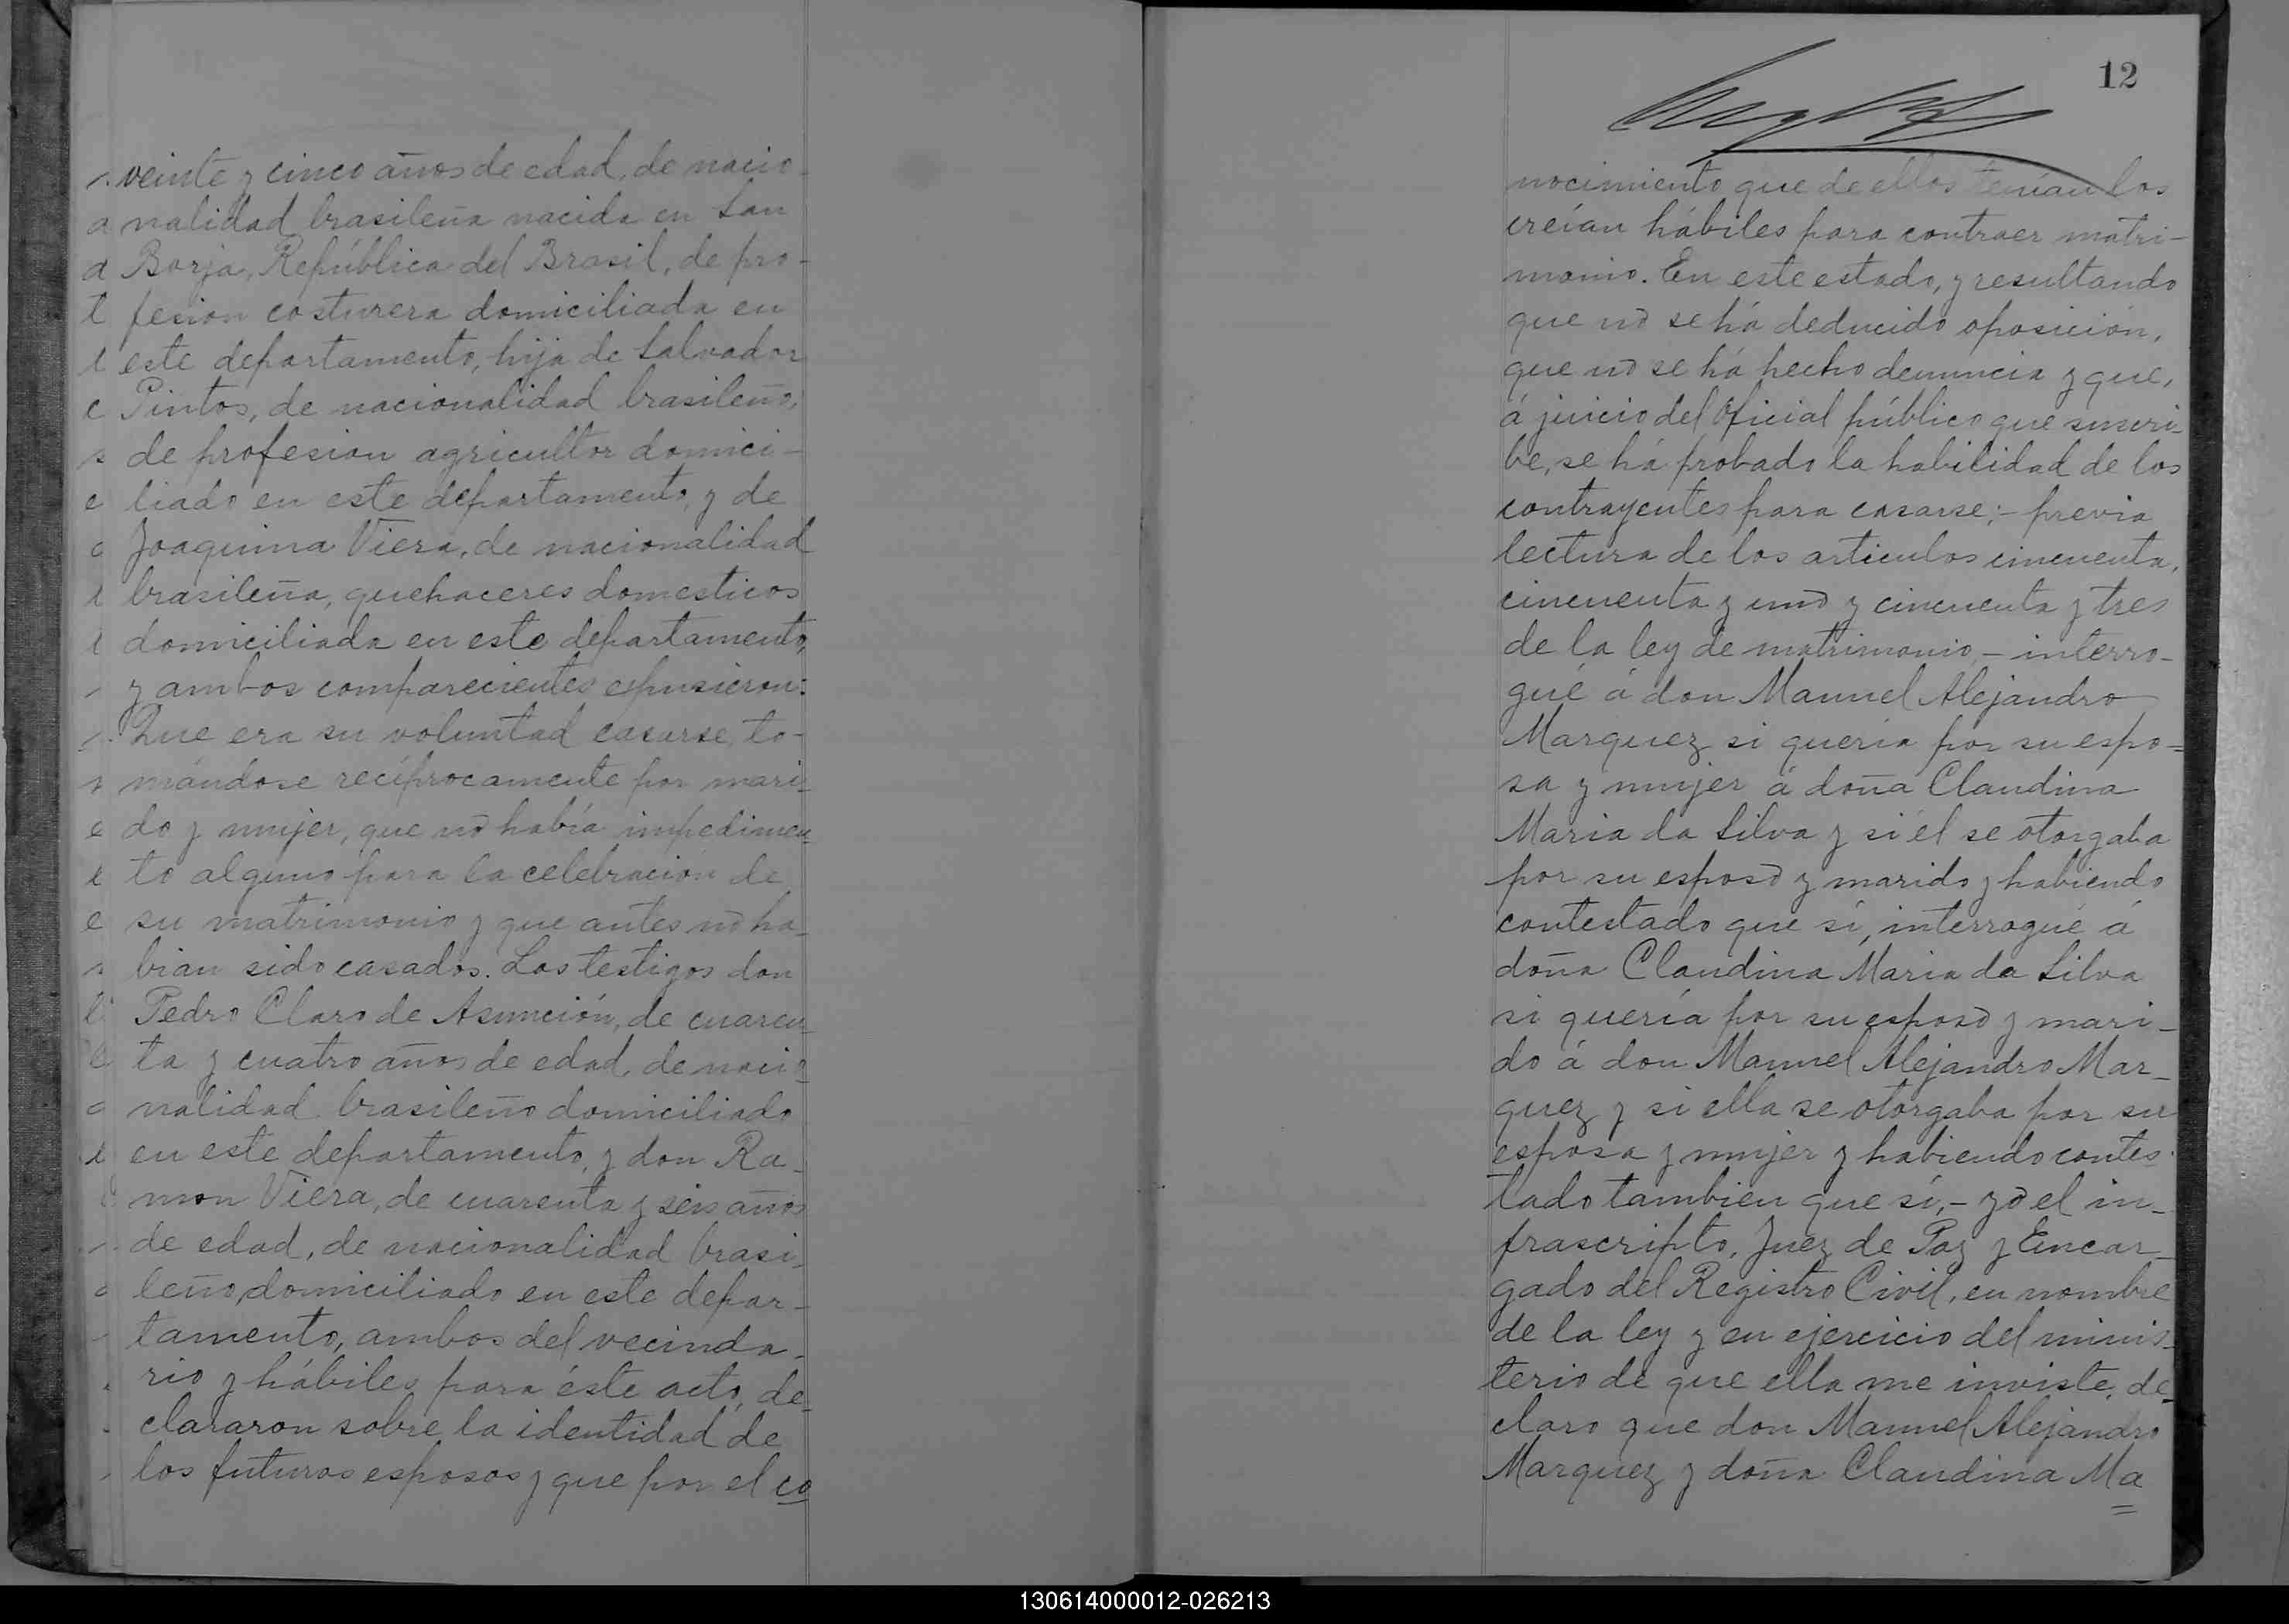 veinte y cinco años de edad, de nacio-
nalidad brasileña nacida en San
Borja, República del Brasil, de pro-
fesion costurera domiciliada en
este departamento, hija de Salvador
Pintos, de nacionalidad brasileño,
de profesion agricultor domici-
liado en este departamento, y de
Joaquina Viera, de nacionalidad
brasileña, quehaceres domesticos
domiciliada en este departamento,
y ambos comparecientes espusieron:
Que era su voluntad casarse, to-
mándose recíprocamente por mari-
do y mujer, que nó había impedimen-
to alguno para la celebración de
su matrimonio y que antes nó ha-
bian sido casados. Los testigos don
Pedro Claro de Asunción, de cuaren-
ta y cuatro años de edad, de nacio-
nalidad brasileño domiciliado
en este departamento, y don Ra-
mon Viera, de cuarenta y seis años
de edad, de nacionalidad brasi-
leño, domiciliado en este depar-
tamento, ambos del vecinda-
rio y hábiles para éste acto, de-
clararon sobre la identidad de
los futuros esposos y que por el co
12
nocimiento que de ellos tenían los
creían hábiles para contraer matri-
monio. En este estado, y resultando
que nó se há deducido oposición,
que nó se há hecho denuncia y que,
á juicio del Oficial público que suscri-
be, se há probado la habilidad de los
contrayentes para casarse; - previa
lectura de los articulos cincuenta,
cincuenta y unó y cincuenta y tres
de la ley de matrimonio, - interro-
gué á don Manuel Alejandro
Marquez si quería por su espo=
sa y mujer á doña Claudina
Maria da Silva y si él se otorgaba
por su esposó y marido y habiendo
contestado que sí, interrogué á
doña Claudina Maria da Silva
si quería por su esposó y mari-
do á don Manuel Alejandro Mar-
quez y si ella se otorgaba por su
esposa y mujer y habiendo contes-
tado tambien que sí, - yó el in-
frascripto, Juez de Paz y Encar-
gado del Registro Civil, en nombre
de la ley y en ejercicio del minis-
terio de que ella me inviste, de-
claro que don Manuel Alejandro
Marquez y doña Claudina Ma
130614000012-026213